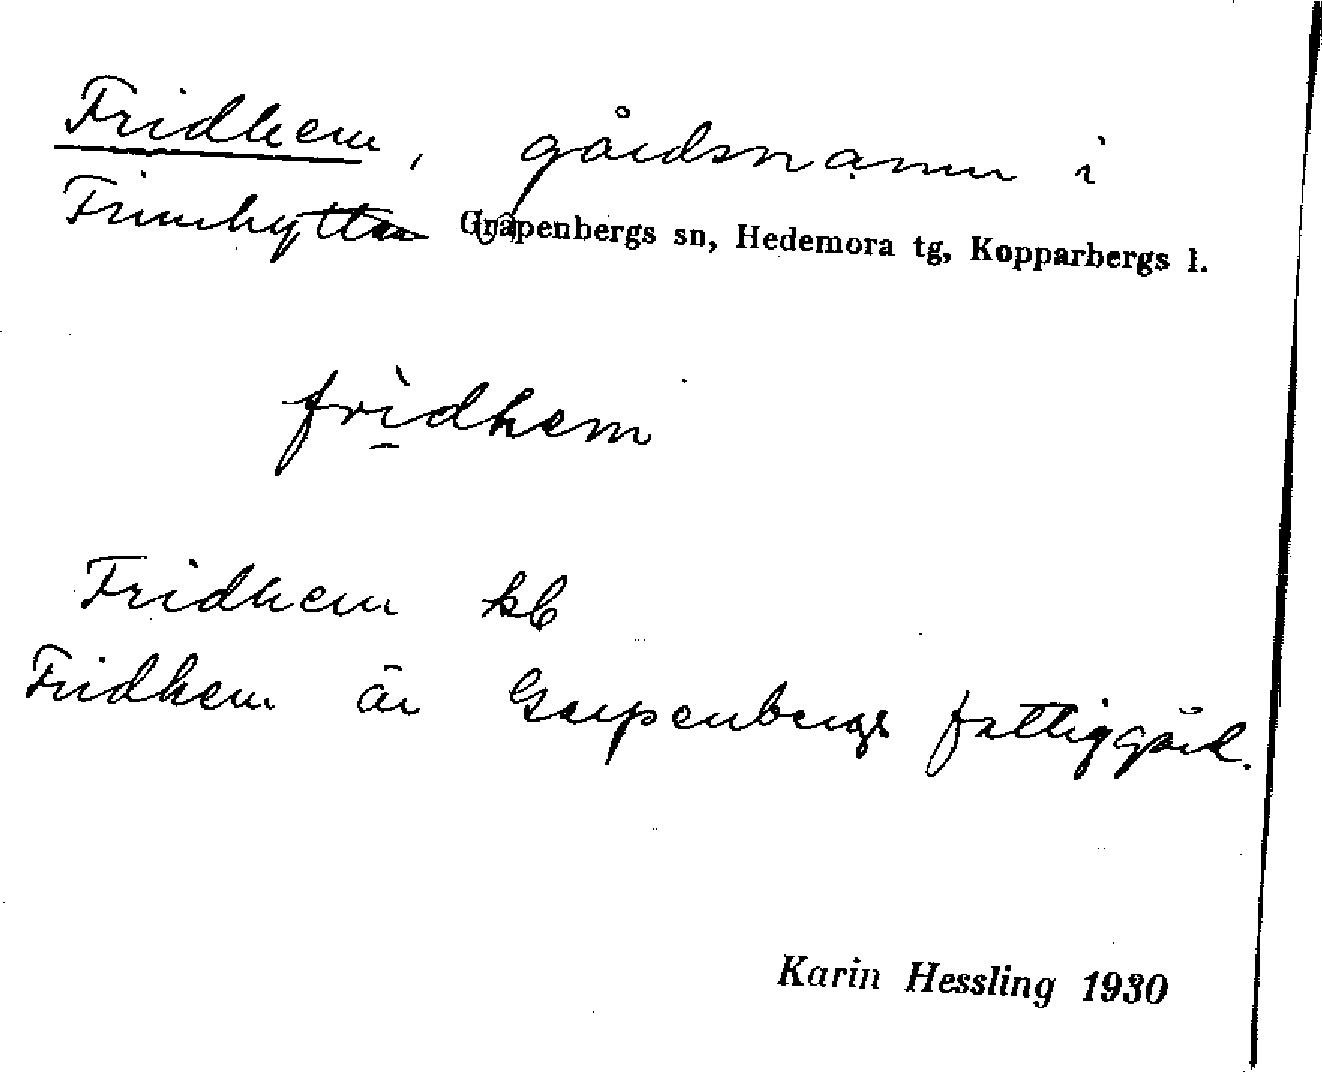 Fridhem, gårdsnamn i
Finnhyttan Grapenbergs sn, Hedemora tg, Kopparbergs l.
frì̠dhem
Fridhem kb
Fridhem är Garpenbergs fattiggård.
Karin Hessling 1930